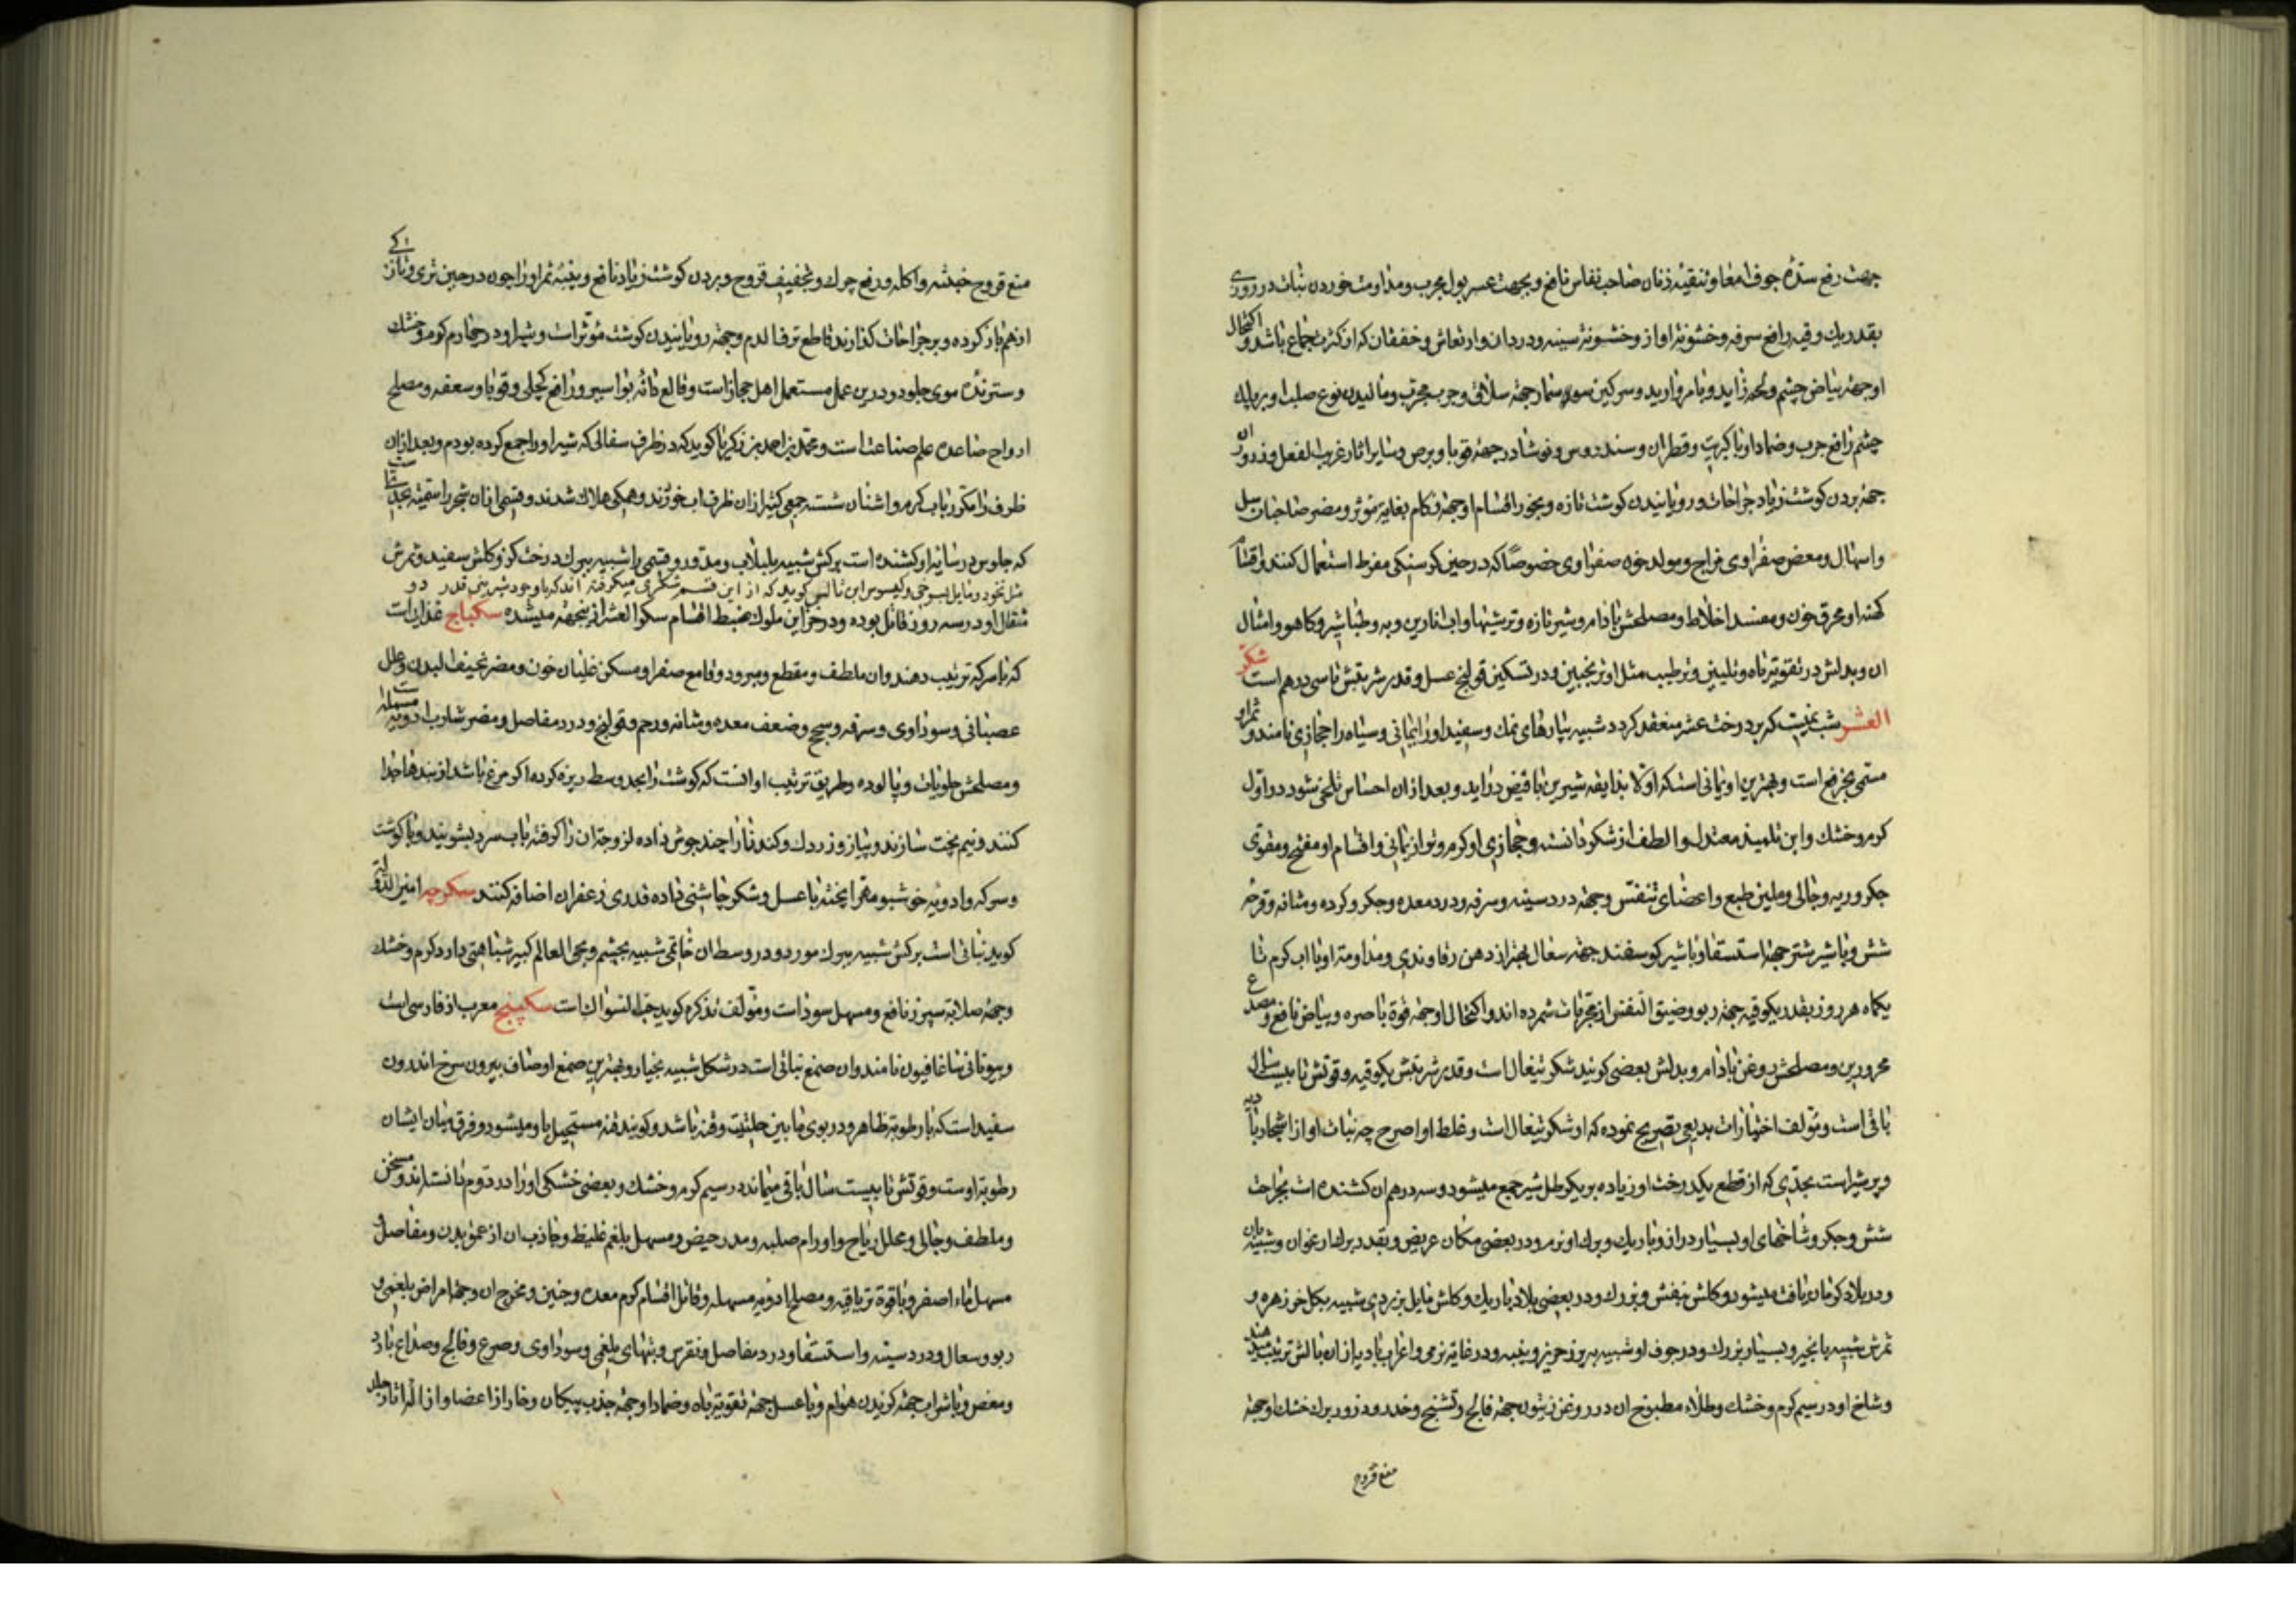 جهت رفع سدّه جوف امعا و تنقیه زنان صاحب نفاس نافع و بجهت عسر بول مجرب و مداومت خوردن نبات در روزی
بقدر یک وقیه رافع سرفه و خشونة اواز و خشونة سینه و درد ان و ارتعاش و خفقان که از کثرت جماع باشد و اکتحال
او جهة بیاض چشم و لحمه زاید و با مروارید و سرکین سوسمار جهة سلاق و جرب مجرب و مالیدن نوع صلب او بر پلک
چشم رافع جرب و ضماد او با کبریت و قطران و سندروس و نوشادر جهة قوبا و برص و سایر اثار غریب الفعل و ذرور ان
جهة بردن کوشت زیاد جراحات و رویانیدن کوشت تازه و بخور اقسام او جهة زکام بغایة موثر و مضر صاحبان سل
و اسهال و معض صفراوی مزاج و مولد خون صفراوی خصوصاً که در حین کرسنکی مفرط استعمال کنند و اقسام
کهنه او محرق خون و مفسد اخلاط و مصلحش بادام و شیر تازه و ترشیها و اب انارین و به و طباشیر و کاهو و امثال
ان و بدلش در تقویة باه و تلیین و ترطیب مثل او ترنجبین و در تسکین قولنج عسل و قدر شربتش تا سی درهم است شکر
العشر شبنمیست که بر درخت عشر منعقد کردد شبیه بپارهای نمک و سفید او را یمانی و سیاه را حجازی نامند و ثمر او
مسمی بخرفع است و بهترین او یمانی است که اولا بذایقه شیرین با قبض دراید و بعد از ان احساس تلخی شود در اول
کرم و خشک و ابن تلمیذ معتدل و الطف از شکر دانسته و حجازی او کرم و تر از یمانی و اقسام او مفتح و مقوی
جکر و ریه و جالی و ملین طبع و اعضای تنفس و جهة درد سینه و سرفه و درد معده و جکر و کرده و مثانه و قرحه
شش و با شیر شتر جهة استسقا و با شیر کوسفند جهة سعال بهتر از دهن رفاوندی و مداومة او با اب کرم تا
یکماه هر روز بقدر یکوقیه جهة ربو و ضیق النفس از مجربات شمرده اند و اکتحال او جهة قوة باصره و بیاض نافع و مصدع
محرورین و مصلحش روغن بادام و بدلش بعضی کویند شکر تیغال است و قدر شربتش یکوقیه و قوتش تا بیست سال
باقی است و مؤلف اختیارات بدیعی تصریح نموده که او شکر تیغال است و غلط او اصرح چه نبات او از اشجار بادیه
و پر شیر است بحدی که از قطع یکدرخت او زیاده بر یکرطل شیر جمع میشود و سه درهم ان کشنده است بجراحت
شش و جکر و شاخهای او بسیار دراز و باریک و برک او نرم و در بعضی مکان عریض و بقدر برک ارغوان و شبیه بان
و در بلاد کرمان یافت میشود و کلش بنفش و بزرک و در بعضی بلاد باریک و کلش مایل بزردی شبیه بکل خرزهره و
ثمرش شبیه بانجیر و بسیار بزرک و در جوف او شبیه به پرز حریر و پنبه و در غایة نرمی و اعراب بادیه از ان بالش ترتیب میدهند
و شاخ او در سیم کرم و خشک و طلاء مطبوخ ان در روغن زیتون جهة فالج و تشنج و خدر و ذرور برک خشک او جهة
منع قروح
منع قروح خبیثه و اکله و رفع چرک و تجفیف قروح و بردن کوشت زیاد نافع و پنبه ثمر او را چون در حین تری و تازکی
از هم باز کرده و بر جراحات کذارند قاطع نزف الدم و جهة رویانیدن کوشت مؤثر است و شیر او در چهارم کرم و خشک
و سترنده موی جلود و درین عمل مستعمل اهل حجاز است و قالع دانه بواسیر و رافع کچلی و قوبا و سعفه و مصلح
ارواح صاعده علم صناعت است و محمد بن احمد بن زکریا کوید که در ظرف سفالی که شیر او را جمع کرده بودم و بعد از ان
ظرف را مکرر باب کرم و اشنان شسته جمعی کثیر از ان ظرف اب خوردند و همکی هلاک شدند و قسمی از ان شجر را سمیة بحدیست
که جلوس در سایه او کشنده است برکش شبیه بلبلاب و مدور و قسمی را شبیه ببرک درخت کوز و کلش سفید و ثمرش
مثل نخود و مایل بسرخی و کیسوس ابن تالیس کوید که از این قسم شکری میکرفته اند که با وجود شیرینی قدر دو
مثقال او در سه روز قاتل بوده و در خزاین ملوک ضبط اقسام سکر العشر از بنجهة میشده سکباج غذایی است
که با سرکه ترتیب دهند و ان ملطف و مقطع و مبرد و قامع صفرا و مسکن غلیان خون و مضر نحیف البدن و علل
عصبانی و سوداوی و سرفه و سحج و ضعف معده و مثانه و رحم و قولنج و درد مفاصل و مضر شارب ادویه مسهله است
و مصلحش حلویات و پالوده و طریق ترتیب او انست که کوشت را بحد وسط ریزه کرده اکر مرغ باشد از بندها جدا
کنند و نیم پخت سازند و پیاز و زردک و کندنا را چند جوش داده لزوجة ان را کرفته باب سرد بشویند و با کوشت
و سرکه و ادویه خوشبو مهرا پخته با عسل و شکر چاشنی داده قدری زعفران اضافه کنند سکرجه امین الدوله
کوید نباتی است برکش شبیه ببرک مورد و در وسط ان خاتمی شبیه بچشم و بحی العالم کبیر شباهتی دارد کرم و خشک
و جهة صلابة سپرز نافع و مسهل سوداست و مؤلف تذکره کوید حب النسوان است سکبینج معرب از فارسی است
و بیونانی ساغافیون نامند و ان صمغ نباتی است در شکل شبیه بخیار و بهترین صمغ او صاف بیرون سرخ اندرون
سفید است که با رطوبة ظاهر و در بوی مابین حلتیت و قنه باشد و کویند قنه مستحیل باو میشود و فرق میان ایشان
رطوبة اوست و قوتش تا بیست سال باقی میماند در سیم کرم و خشک و بعضی خشکی او را در دوم دانسته اند و مسخن
و ملطف و جالی و محلل ریاح و اورام صلبه و مدر حیض و مسهل بلغم غلیظ و جاذب ان از عمق بدن و مفاصل و
مسهل ماء اصفر و با قوة تریاقیه و مصلح ادویه مسهله و قاتل اقسام کرم معده و جنین و مخرج ان و جهة امراض بلغمی و
ربو و سعال و درد سینه و استسقا و درد مفاصل و نقرس و تبهای بلغمی و سوداوی و صرع و فالج و صداع بارد
و مغص و با شراب جهة کزیدن هوام و با عسل جهة تقویة باه و ضماد او جهة جذب پیکان و خار از اعضا و ازاله اثار جلد